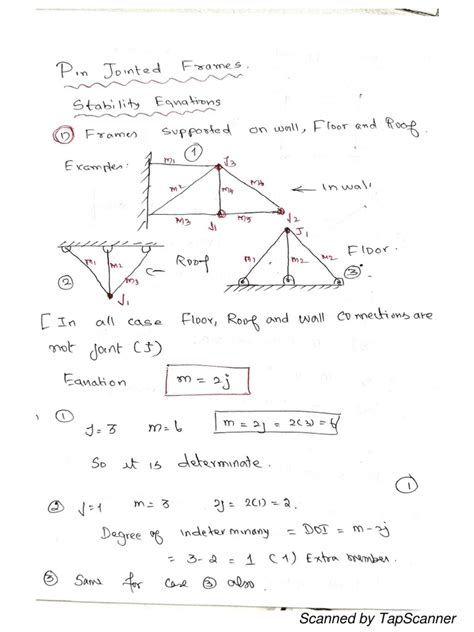 Pin Jointed Frames.
Stability Equations
1) Frames supported on wall, Floor and Roof.
Examples:
1
m1
J3
m2
m4
m6
← In wall
m3
J1
m5
J2
m1
m2
m3
J1
← Roof
2
J1
m1
m2
m2
Floor.
3
[ In all case Floor, Roof and wall Connections are
not joint (J)
Equation
m = 2j
1
J=3 m=6 m = 2j = 2(3) = 6
So it is determinate.
1
2 J=1 m=3 2j = 2(1) = 2.
Degree of indeterminany = DOI = m-2j
= 3-2 = 1 (1) Extra member.
3 Same for case 3 also.
Scanned by TapScanner